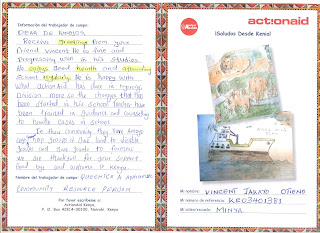 Información del trabajador de campo:
DEAR DE
RECEIVE Greetings from your
friend Vincent. He is fine and
progressing well in his studies.
He enjoys good health and attending
School regularly. He is happy with
what ActionAid has done in
Division more so the changes that has
been started in his School teacher have
been trained in Guidance and Counseling
to handle cases in School.
In their community they have
groups to
goods and give goats to
we are thankful for your support.
Good bye and welcome to Kenya
COMMUNITY RESOURCE PERSON
Por favor escribeme a:
Actionaid Kenya,
P. O. Box 42814-00100, Nairobi, Kenya
act:onaid
¡Saludos Desde Kenia!
Mi nombre: VINCENT OTIENO
Mi número de referencia: KE03401381
Mi aldea/escuela: MINYA